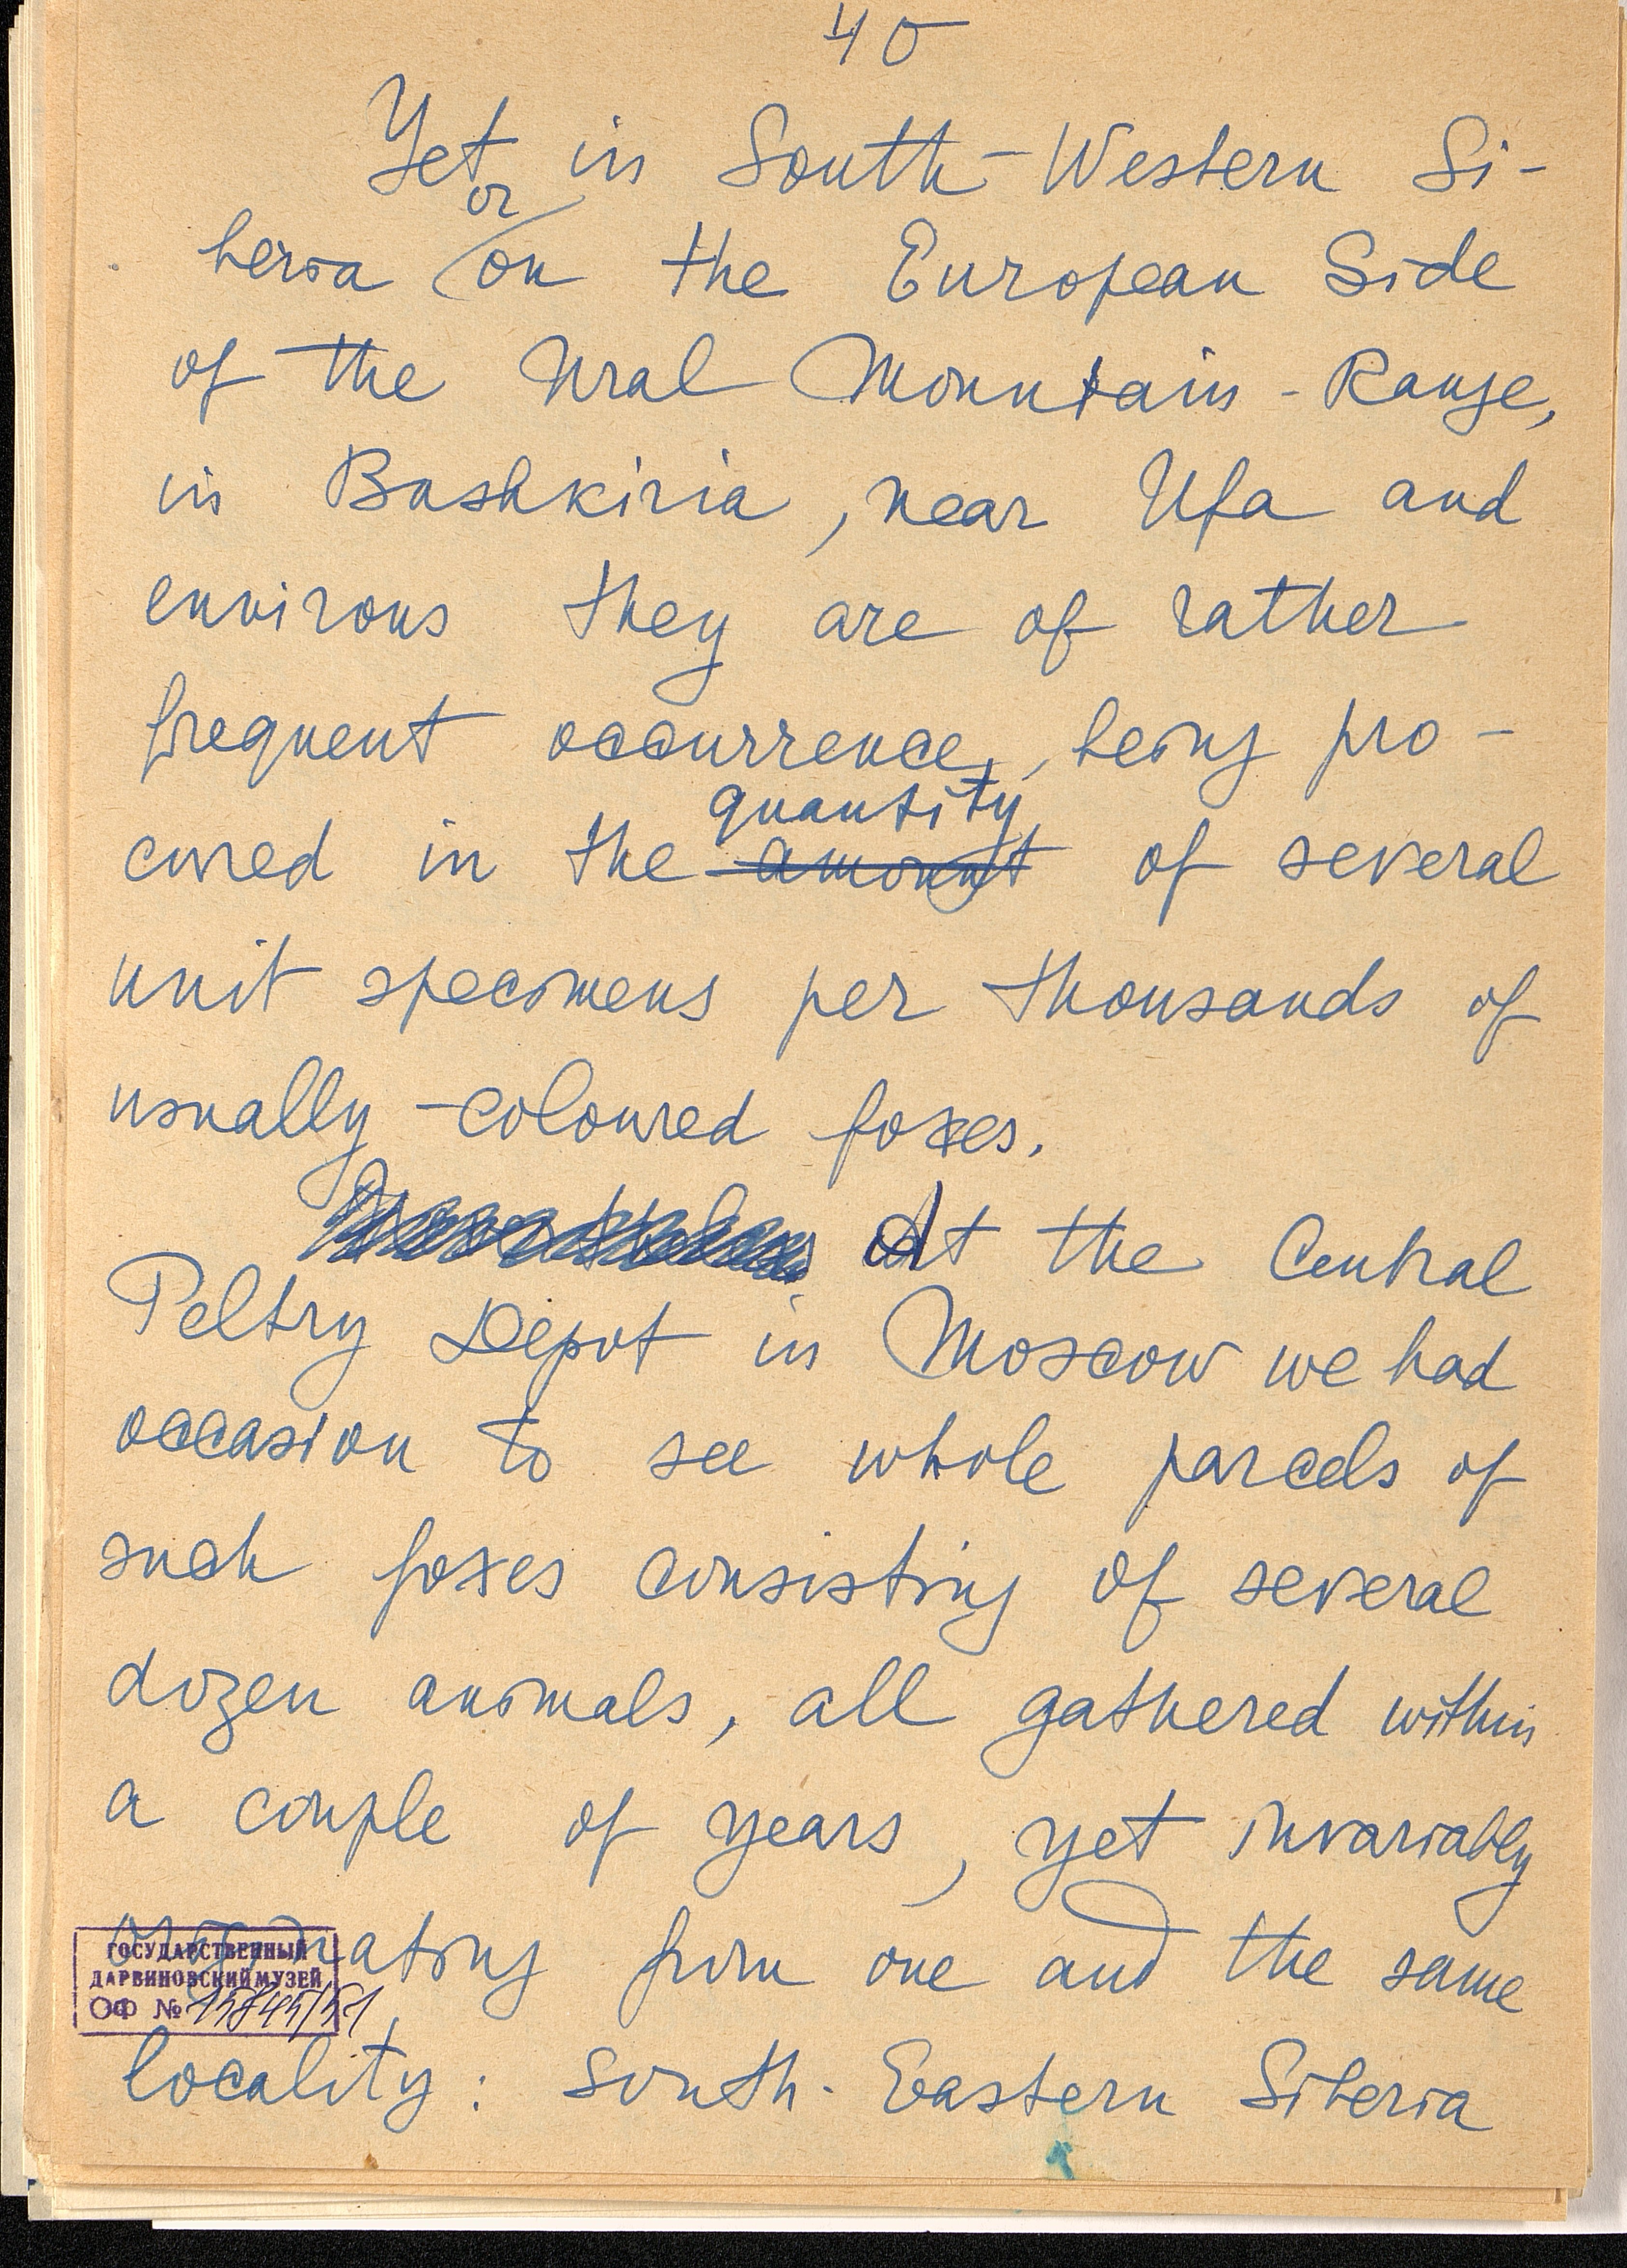 40
Yet in South-Western Si-
or
beria on the European Side
of the Ural Mountain-Range,
in Bashkiria, near Ufa and
environs they are of rather
frequent occurrence, being pro-
quantity
cured in the amount of several
unit specimens per thousands of
usually-coloured foxes.
At the Central
Peltry Depot in Moscow we had
occasion to see whole parcels of
such foxes consisting of several
dozen animals, all gathered within
a couple of years, yet invariably
originating from one and the same
locality: South-Eastern Siberia
ГОСУДАРСТВЕННЫЙ
ДАРВИНОВСКИЙ МУЗЕЙ
ОФ №